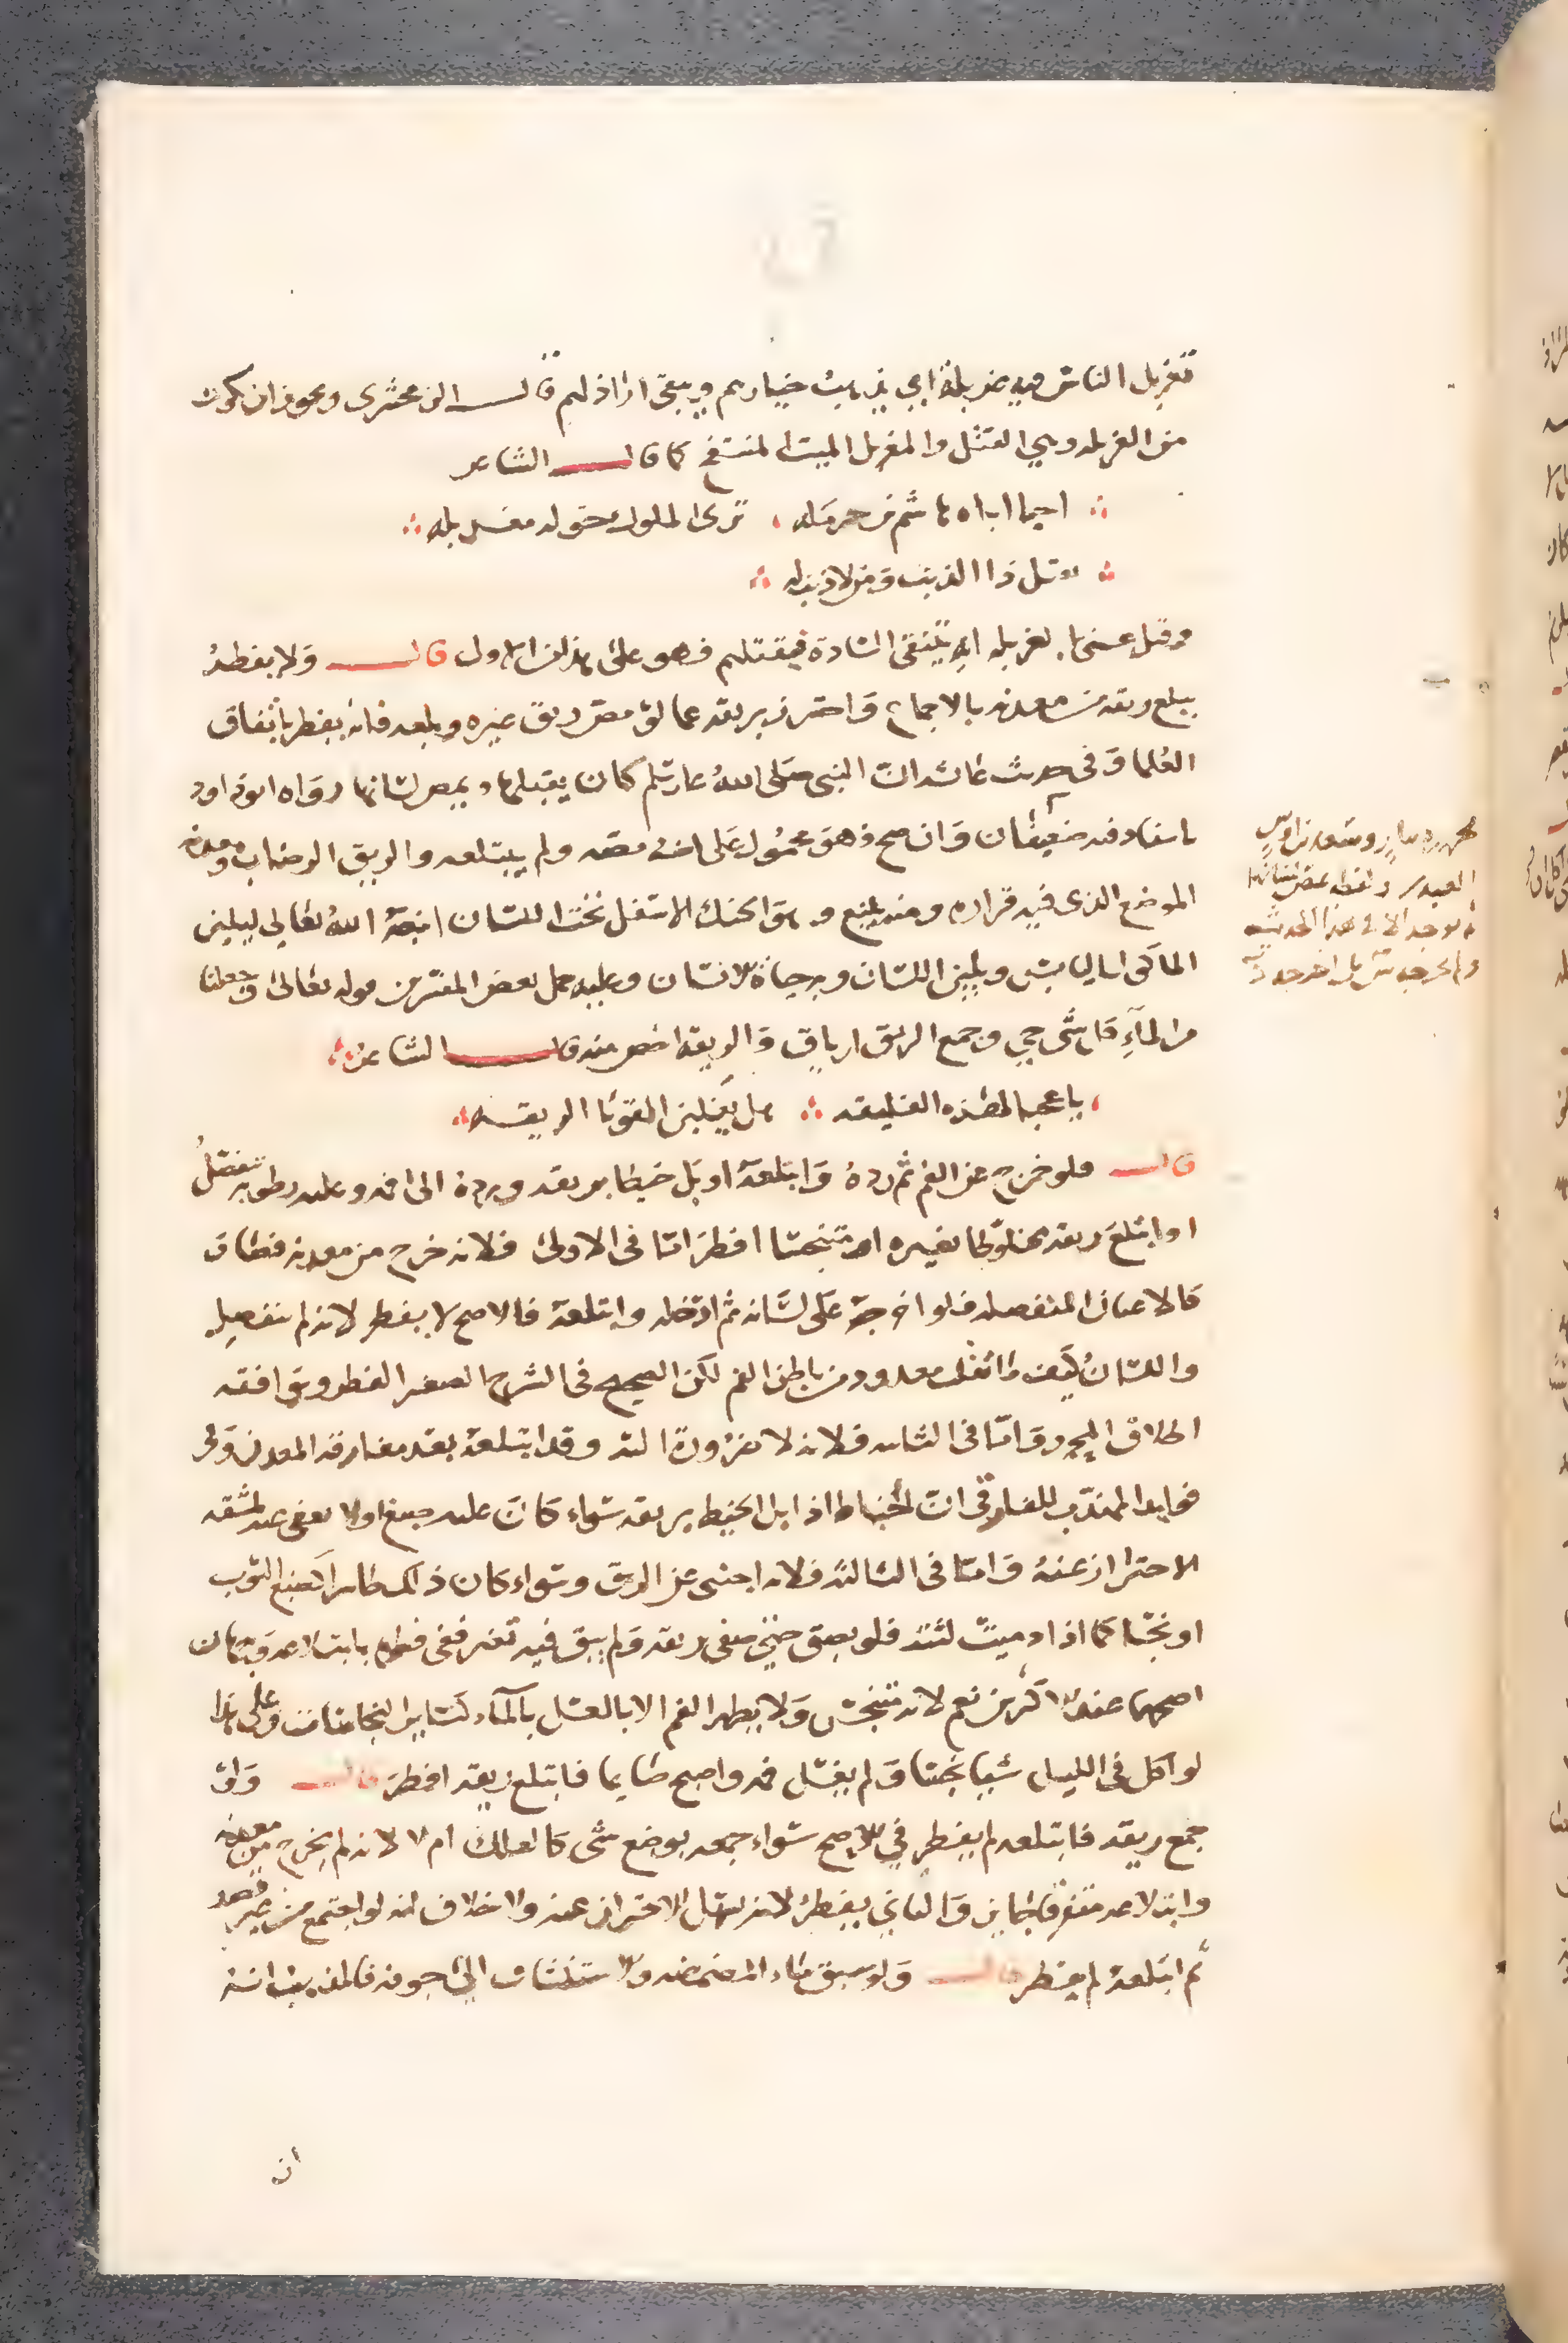 تغربل الناس فيه غربلة اي يذهب خيارهم ويبقى اراذلهم قال الزمخشري ويجوز ان يكون
من الغربلة وهي القتل والمغربل الميت المنتفخ كما قال الشاعر
احيا اباه هاشم بن حرمله ترى الملوك حوله مغربله
يقتل ذا الذنب ومن لا ذنب له
وقيل عنى بالغربله انه ينتقي السادة فيقتلهم فهو على هذا من الاول قال ولا يفطر
ببلع ريقه من معدنه بالاجماع واحترز بريقه عما لو مص ريق غيره وبلعه فانه يفطر باتفاق
العلما وفي حديث عائشة ان النبي صلى الله عليه وسلم كان يقبلها ويمص لسانها رواه ابو داود
باسناد فيه ضعيفان وان صح فهو محمول على انه مصه ولم يبتلعه والريق الرضاب ومعدنه
الموضع الذي فيه قراره ومنه ينبع وهو الحنك الاسفل تحت اللسان انبعه الله تعالى ليلين
الماكل اليابس ويلين اللسان وبه حياة الانسان وعليه حمل بعض المفسرين قوله تعالى وجعلنا
من الماء كل شي حي وجمع الريق ارياق والريقة اخص منه قال الشاعر
يا عجبا لهذه الفليقه هل يغلبن القوبا الريقه
قال فلو خرج عن الفم ثم رده وابتلعه او بل خيطا بريقه ورده الى فمه وعليه رطوبة تنفصل
او ابتلع ريقه مخلوطا بغيره او متنجسا افطر اما في الاولى فلانه خرج من معدنه فصار
كالاعيان المنفصله فلو اخرجه على لسانه ثم ادخله وابتلعه فالاصح لا يفطر لانه لم ينفصل
واللسان كيف ما تقلب معدود من باطن الفم لكن الصحيح في الشرح الصغير الفطر ويوافقه
اطلاق المحرر واما في الثانيه فلانه لا ضرورة اليه وقد ابتلعه بعد مفارقة المعدن وفي
فوايد المهذب للفارقي ان الخياط اذا بل الخيط بريقه سواء كان عليه صبغ او لا يعفى عنه لمشقة
الاحتراز عنه واما في الثالثة فلانه اجنبي عن الريق وسواء كان ذلك طاهرا كصبغ الثوب
او نجسا كما اذا دميت لثته فلو بصق حتى صفي ريقه ولم يبق فيه تغير ففي فطره بابتلاعه وجهان
اصحهما عند الاكثرين نعم لانه متنجس ولا يطهر الفم الا بالغسل بالماء كساير النجاسات وعلى هذا
لو اكل في الليل شيا نجسا ولم يغسل فمه واصبح صايما فابتلع ريقه افطر قال ولو
جمع ريقه فابتلعه لم يفطر في الاصح سواء جمعه بوضع شي كالعلك ام لا لانه لم يخرج من معدنه
وابتلاعه متفرقا جايز والثاني يفطر لانه يسهل الاحتراز عنه ولا خلاف انه لو اجتمع من غير قصد
ثم ابتلعه لم يفطر قال ولو سبق ماء المضمضه والاستنشاق الى جوفه فالمذهب انه
ان
محمد بن دينار وسعد بن اوس
العبدي ولفظة يمص لسانها
لا توجد الا في هذا الحديث